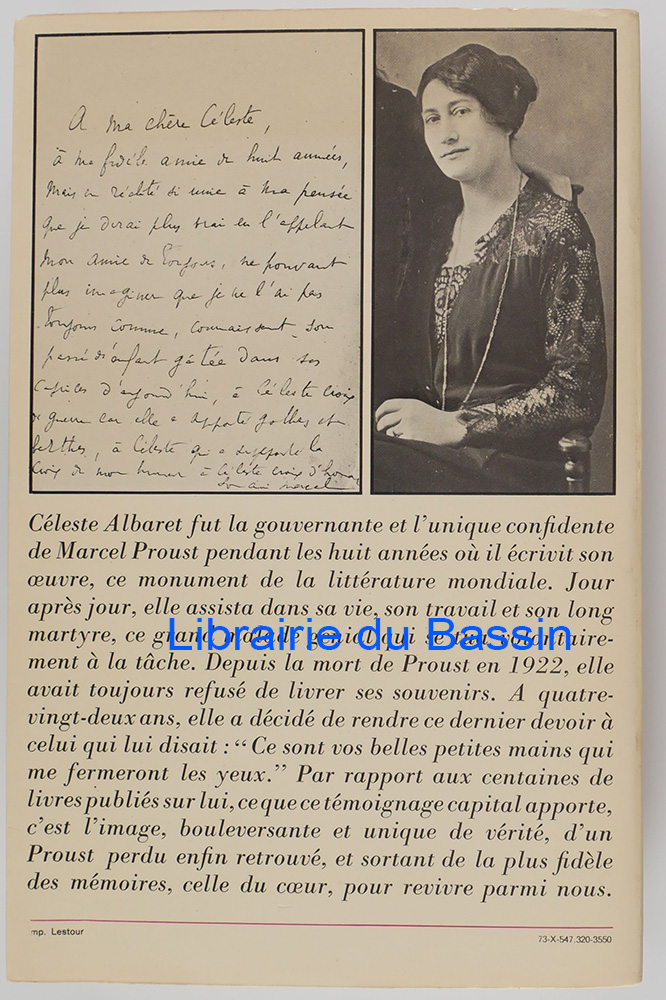 A ma chère Céleste,
à ma fidèle amie de huit années,
mais en réalité si unie à ma pensée
que je dirai plus vrai en l'appelant
mon amie de toujours, ne pouvant
plus imaginer que je ne l'ai pas
toujours connue, connaissant son
passé d'enfant gâtée dans ses
caprices d'aujourd'hui, à Céleste croix
de guerre car elle a supporté gothas et
berthas, à Céleste qui a supporté la
croix de mon humeur à Céleste croix d'honneur
Son ami Marcel
Céleste Albaret fut la gouvernante et l'unique confidente
de Marcel Proust pendant les huit années où il écrivit son
œuvre, ce monument de la littérature mondiale. Jour
après jour, elle assista dans sa vie, son travail et son long
martyre, ce grand malade génial qui se tua volontaire-
ment à la tâche. Depuis la mort de Proust en 1922, elle
avait toujours refusé de livrer ses souvenirs. A quatre-
vingt-deux ans, elle a décidé de rendre ce dernier devoir à
celui qui lui disait : “Ce sont vos belles petites mains qui
me fermeront les yeux.” Par rapport aux centaines de
livres publiés sur lui, ce que ce témoignage capital apporte,
c'est l'image, bouleversante et unique de vérité, d'un
Proust perdu enfin retrouvé, et sortant de la plus fidèle
des mémoires, celle du cœur, pour revivre parmi nous.
Librairie du Bassin
mp. Lestour
73-X-547.320-3550